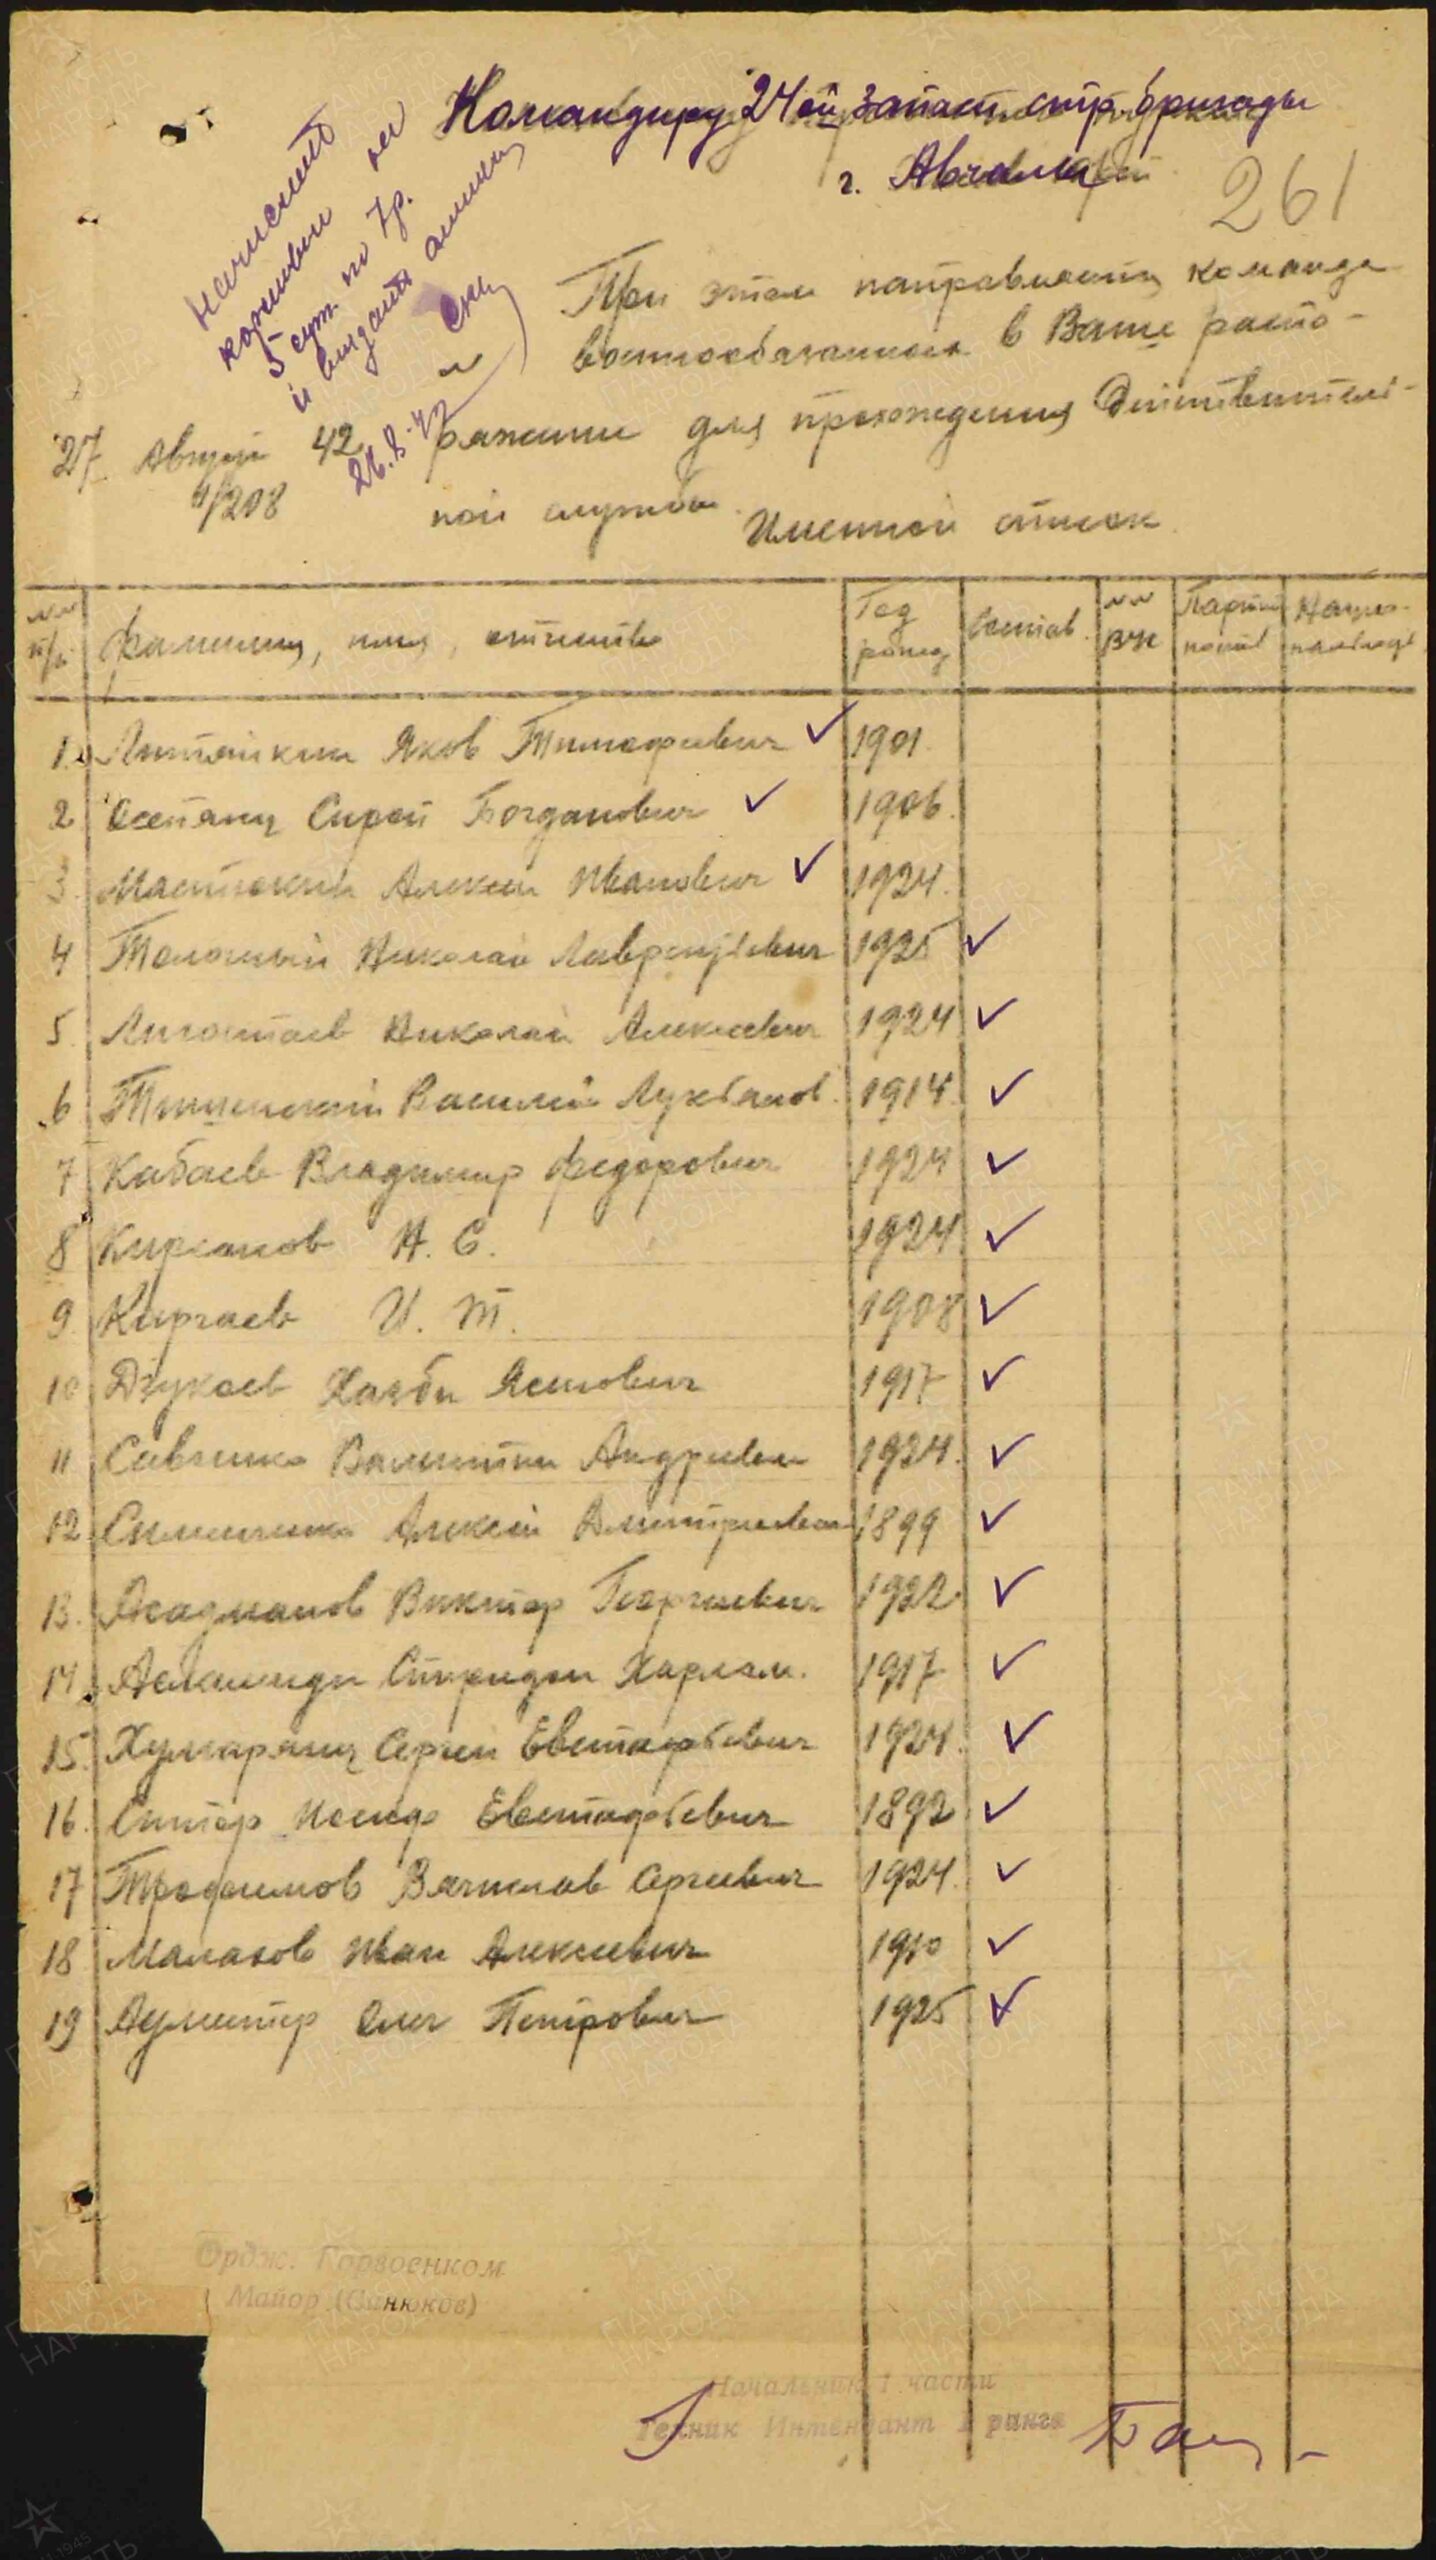 Командиру 24ой запасн. стр. бригады
г. Авчалы
261
начислить
кормовых на
5 сут. по 7р.
и выдать
26.8-42
При этом направляется команда
военнообязанных в Ваше распо-
ряжение для прохождения действитель-
ной службы.
27 Август 42
4/208
Именной список
№№ п/п
Фамилия, имя, отчество
Год рожд
Состав.
№№ ВУС
Партий
Нацио-
1. Яков Тимофеевич 1901.
2 Осепянц Сирой Богданович 1906.
3. Мастюкин Алексей Иванович 1924.
4 Николай Лаврентьевич 1925
5. Лигостаев Николай Алексеевич 1924
6 Василий 1914.
7 Кабаев Владимир Федорович 1924
8 Кирсанов Н. С. 1924
9. Киргаев И. Т. 1908
10 Дзукаев Хазби 1917
11 Савченко Валентин Андреевич 1924.
12. Симоненко Алексей Дмитриевич 1899
13. Виктор Георгиевич 1922
14. Спиридон Харлам. 1917
15. Хумарянц Сергей Евстафьевич 1924.
16. Ситор Иосиф Евстафьевич 1892
17 Трофимов Вячеслав Сергеевич 1924.
18 Малахов Иван Алексеевич 1910
19 Олег Петрович 1925
Ордж. Горвоенком
Майор (Синюков)
Начальник 1 части
Техник Интендант 1 ранга